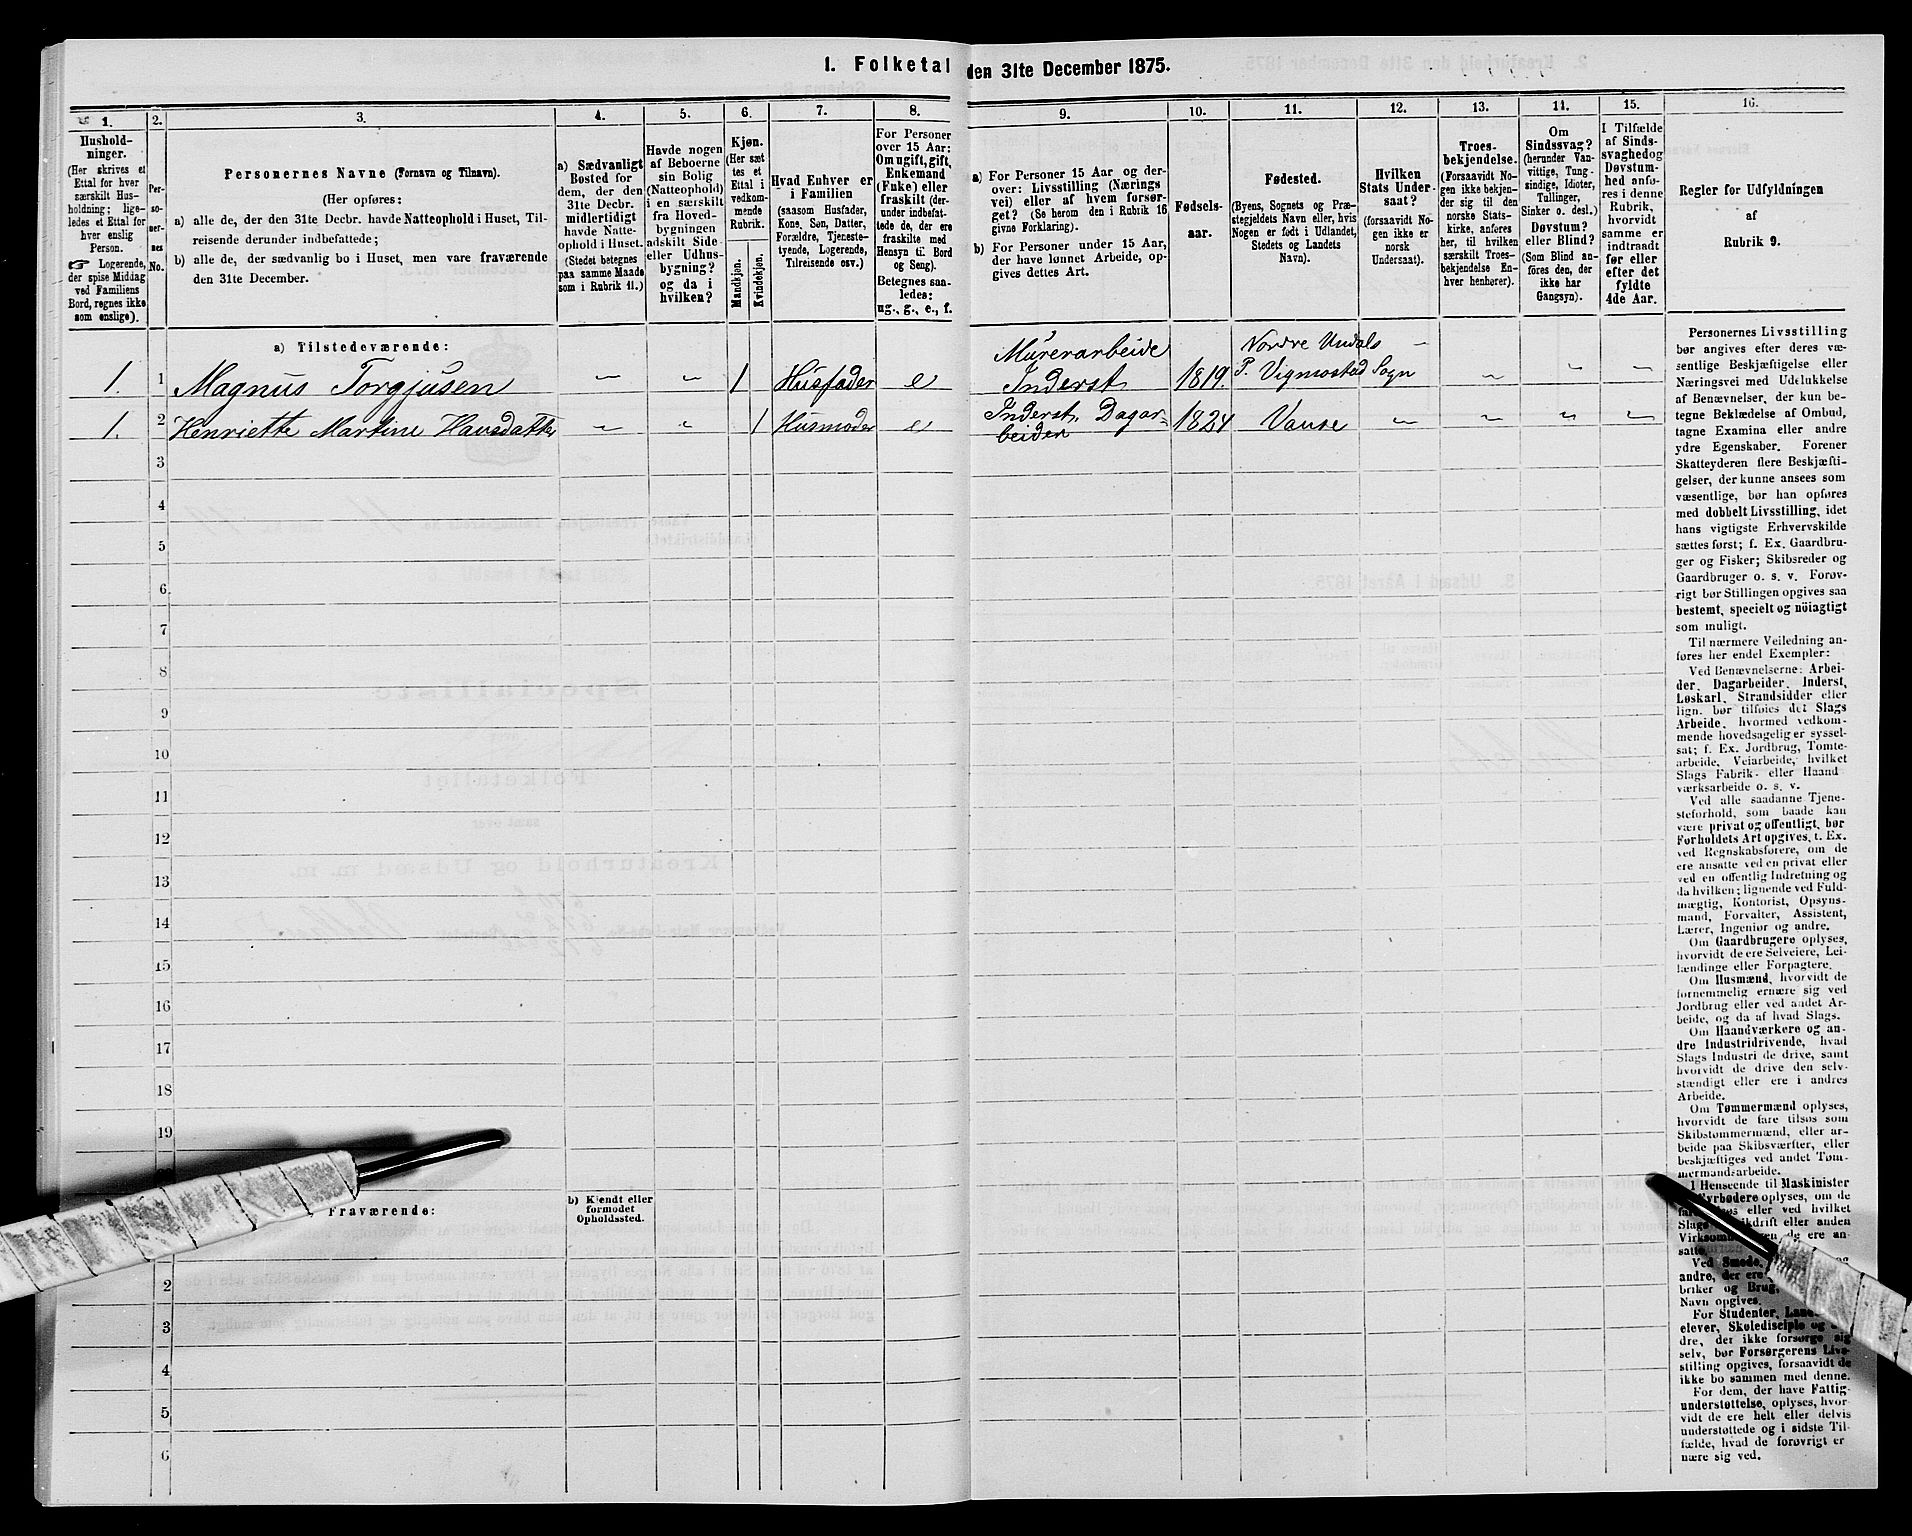 1. Folketal den 31te December 1875.
1.
Hushold-
ninger.
(Her skrives et
Ettal for hver
særskilt Hus-
holdning; lige-
ledes et Ettal for
hver enslig
Person.
☞ Logerende,
der spise Middag
ved Familiens
Bord, regnes ikke
som enslige).
2.
Per-
so-
ner-
nes
No.
3.
Personernes Navne (Fornavn og Tilnavn).
(Her opføres:
a) alle de, der den 31te Decbr. havde Natteophold i Huset, Til-
reisende derunder indbefattede;
b) alle de, der sædvanlig bo i Huset, men vare fraværende
den 31te December.
4.
a) Sædvanligt
Bosted for
dem, der den
31te Decbr.
midlertidigt
havde Natte-
ophold i Huset.
(Stedet betegnes
paa samme Maade
som i Rubrik 11.)
5.
Havde nogen
af Beboerne
sin Bolig
(Natteophold)
i en særskilt
fra Hoved-
bygningen
adskilt Side-
eller Udhus-
bygning?
og da i
hvilken?
6.
Kjøn.
(Her sæt
tes et
Ettal i
vedkom-
mende
Rubrik.
Mandkjøn.
Kvindekjøn.
7.
Hvad Enhver er
i Familien
(saasom Husfader,
Kone, Søn, Datter,
Forældre, Tjeneste-
tyende, Logerende,
Tilreisende osv.)
8.
For Personer
over 15 Aar:
Om ugift, gift,
Enkemand
(Enke) eller
fraskilt (der-
under indbefat-
tede de, der ere
fraskilte med
Hensyn til Bord
og Seng).
Betegnes saa-
ledes:
ug., g., e., f.
9.
a) For Personer 15 Aar og der-
over: Livsstilling (Nærings
vei) eller af hvem forsør-
get? (Se herom den i Rubrik 16
givne Forklaring).
b) For Personer under 15 Aar,
der have lønnet Arbeide, op-
gives dettes Art.
10.
Fødsels-
aar.
11.
Fødested.
(Byens, Sognets og Præ-
stegjeldets Navn eller, hvis
Nogen er født i Udlandet,
Stedets og Landets
Navn).
12.
Hvilken
Stats Under-
saat?
(forsaavidt No-
gen ikke er
norsk
Undersaat).
13.
Troes-
bekjendelse.
(Forsaavidt No-
gen ikke bekjen-
der sig til den
norske Stats-
kirke, anføres
her, til hvilken
særskilt Troes-
bekjendelse En-
hver henhører).
14.
Om
Sindssvag?
(herunder Van-
vittige, Tung-
sindige, Idioter,
Tullinger,
Sinker o. desl.)
Døvstum?
eller Blind?
(Som Blind an-
føres den, der
ikke har
Gangsyn).
15.
I Tilfælde
af Sinds-
svaghed og
Døvstum-
hed anfø-
res i denne
Rubrik,
hvorvidt
samme er
indtraadt
før eller
efter det
fyldte
4de Aar.
16.
Regler for Udfyldningen
af
Rubrik 9.
a) Tilstedeværende:
1. 1 Magnus Torgjusen " " 1 Husfader e Murerarbeide Inderst 1819. Nordre Undals P. Vigmostad Sogn " " " "
1. 2 Henriette Martine Hansdatter " " 1 Husmoder e Inderst, Dagarbeider 1824 Vanse " " " "
3
4
5
6
7
8
9
10
11
12
13
14
15
16
17
18
19
Fraværende:
b) Kjendt eller
formodet
Opholdssted.
2
3
4
5
6
Personernes Livsstilling
bør angives efter deres væ-
sentlige Beskjæftigelse eller
Næringsvei med Udelukkelse
af Benævnelser, der kun be-
tegne Beklædelse af Ombud,
tagne Examina eller andre
ydre Egenskaber. Forener
Skatteyderen flere Beskjæfti-
gelser, der kunne ansees som
væsentlige, bør han opføres
med dobbelt Livsstilling, idet
hans vigtigste Erhvervskilde
sættes først; f. Ex. Gaardbru-
ger og Fisker; Skibsreder og
Gaardbruger o. s. v. Forøv-
rigt bør Stillingen opgives saa
bestemt, specielt og nöiagtigt
som muligt.
Til nærmere Veiledning an-
føres her endel Exempler:
Ved Benævnelserne: Arbei-
der, Dagarbeider, Inderst,
Løskarl, Strandsidder eller
lign. bør tilføies det Slags
Arbeide, hvormed vedkom-
mende hovedsagelig er syssel-
sat; f. Ex. Jordbrug, Tomte-
arbeide, Veiarbeide, hvilket
Slags Fabrik- eller Haand
værksarbeide o. s. v.
Ved alle saadanne Tjene-
steforhold, som baade kan
være privat og offentligt, bør
Forholdets Art opgives, t. Ex.
ved Regnskabsførere, om de
ere ansatte ved en privat eller
ved en offentlig Indretning og
da hvilken; lignende ved Fuld-
mægtig, Kontorist, Opsyns-
mand, Forvalter, Assistent,
Lærer, Ingeniør og andre.
Om Gaardbrugere oplyses,
hvorvidt de ere Selveiere, Lei-
lændinge eller Forpagtere.
Om Husmænd, hvorvidt de
fornemmelig ernære sig ved
Jordbrug eller ved andet Ar-
beide, og da af hvad Slags.
Om Haandværkere og an-
dre Industridrivende, hvad
Slags Industri de drive, samt
hvorvidt de drive den selv-
stændigt eller ere i andres
Arbeide.
Om Tømmermænd oplyses,
hvorvidt de fare tilsøs som
Skibstømmermænd, eller ar-
beide paa Skibsværfter, eller
beskjæftiges ved andet Tøm-
mermandsarbeide.
I Henseende til Maskinister
yrbødere oplyses, om de
fare øs eller ved hvilket
Slags ikdrift eller anden
Virksom en de ere an-
satte.
Ved Smede, og
andre, der ere
briker og Brug,
Navn opgives.
For Studenter, Land
elever, Skoledisciple og
dre, der ikke forsørge sig
selv, bør Forsørgerens Livs-
stilling opgives, forsaavidt de
ikke bo sammen med denne.
For dem, der have Fattig-
understøttelse, oplyses, hvor-
vidt de ere helt eller delvis
understøttede og i sidste Til-
fælde, hvad de forøvrigt er
nære sig ved.